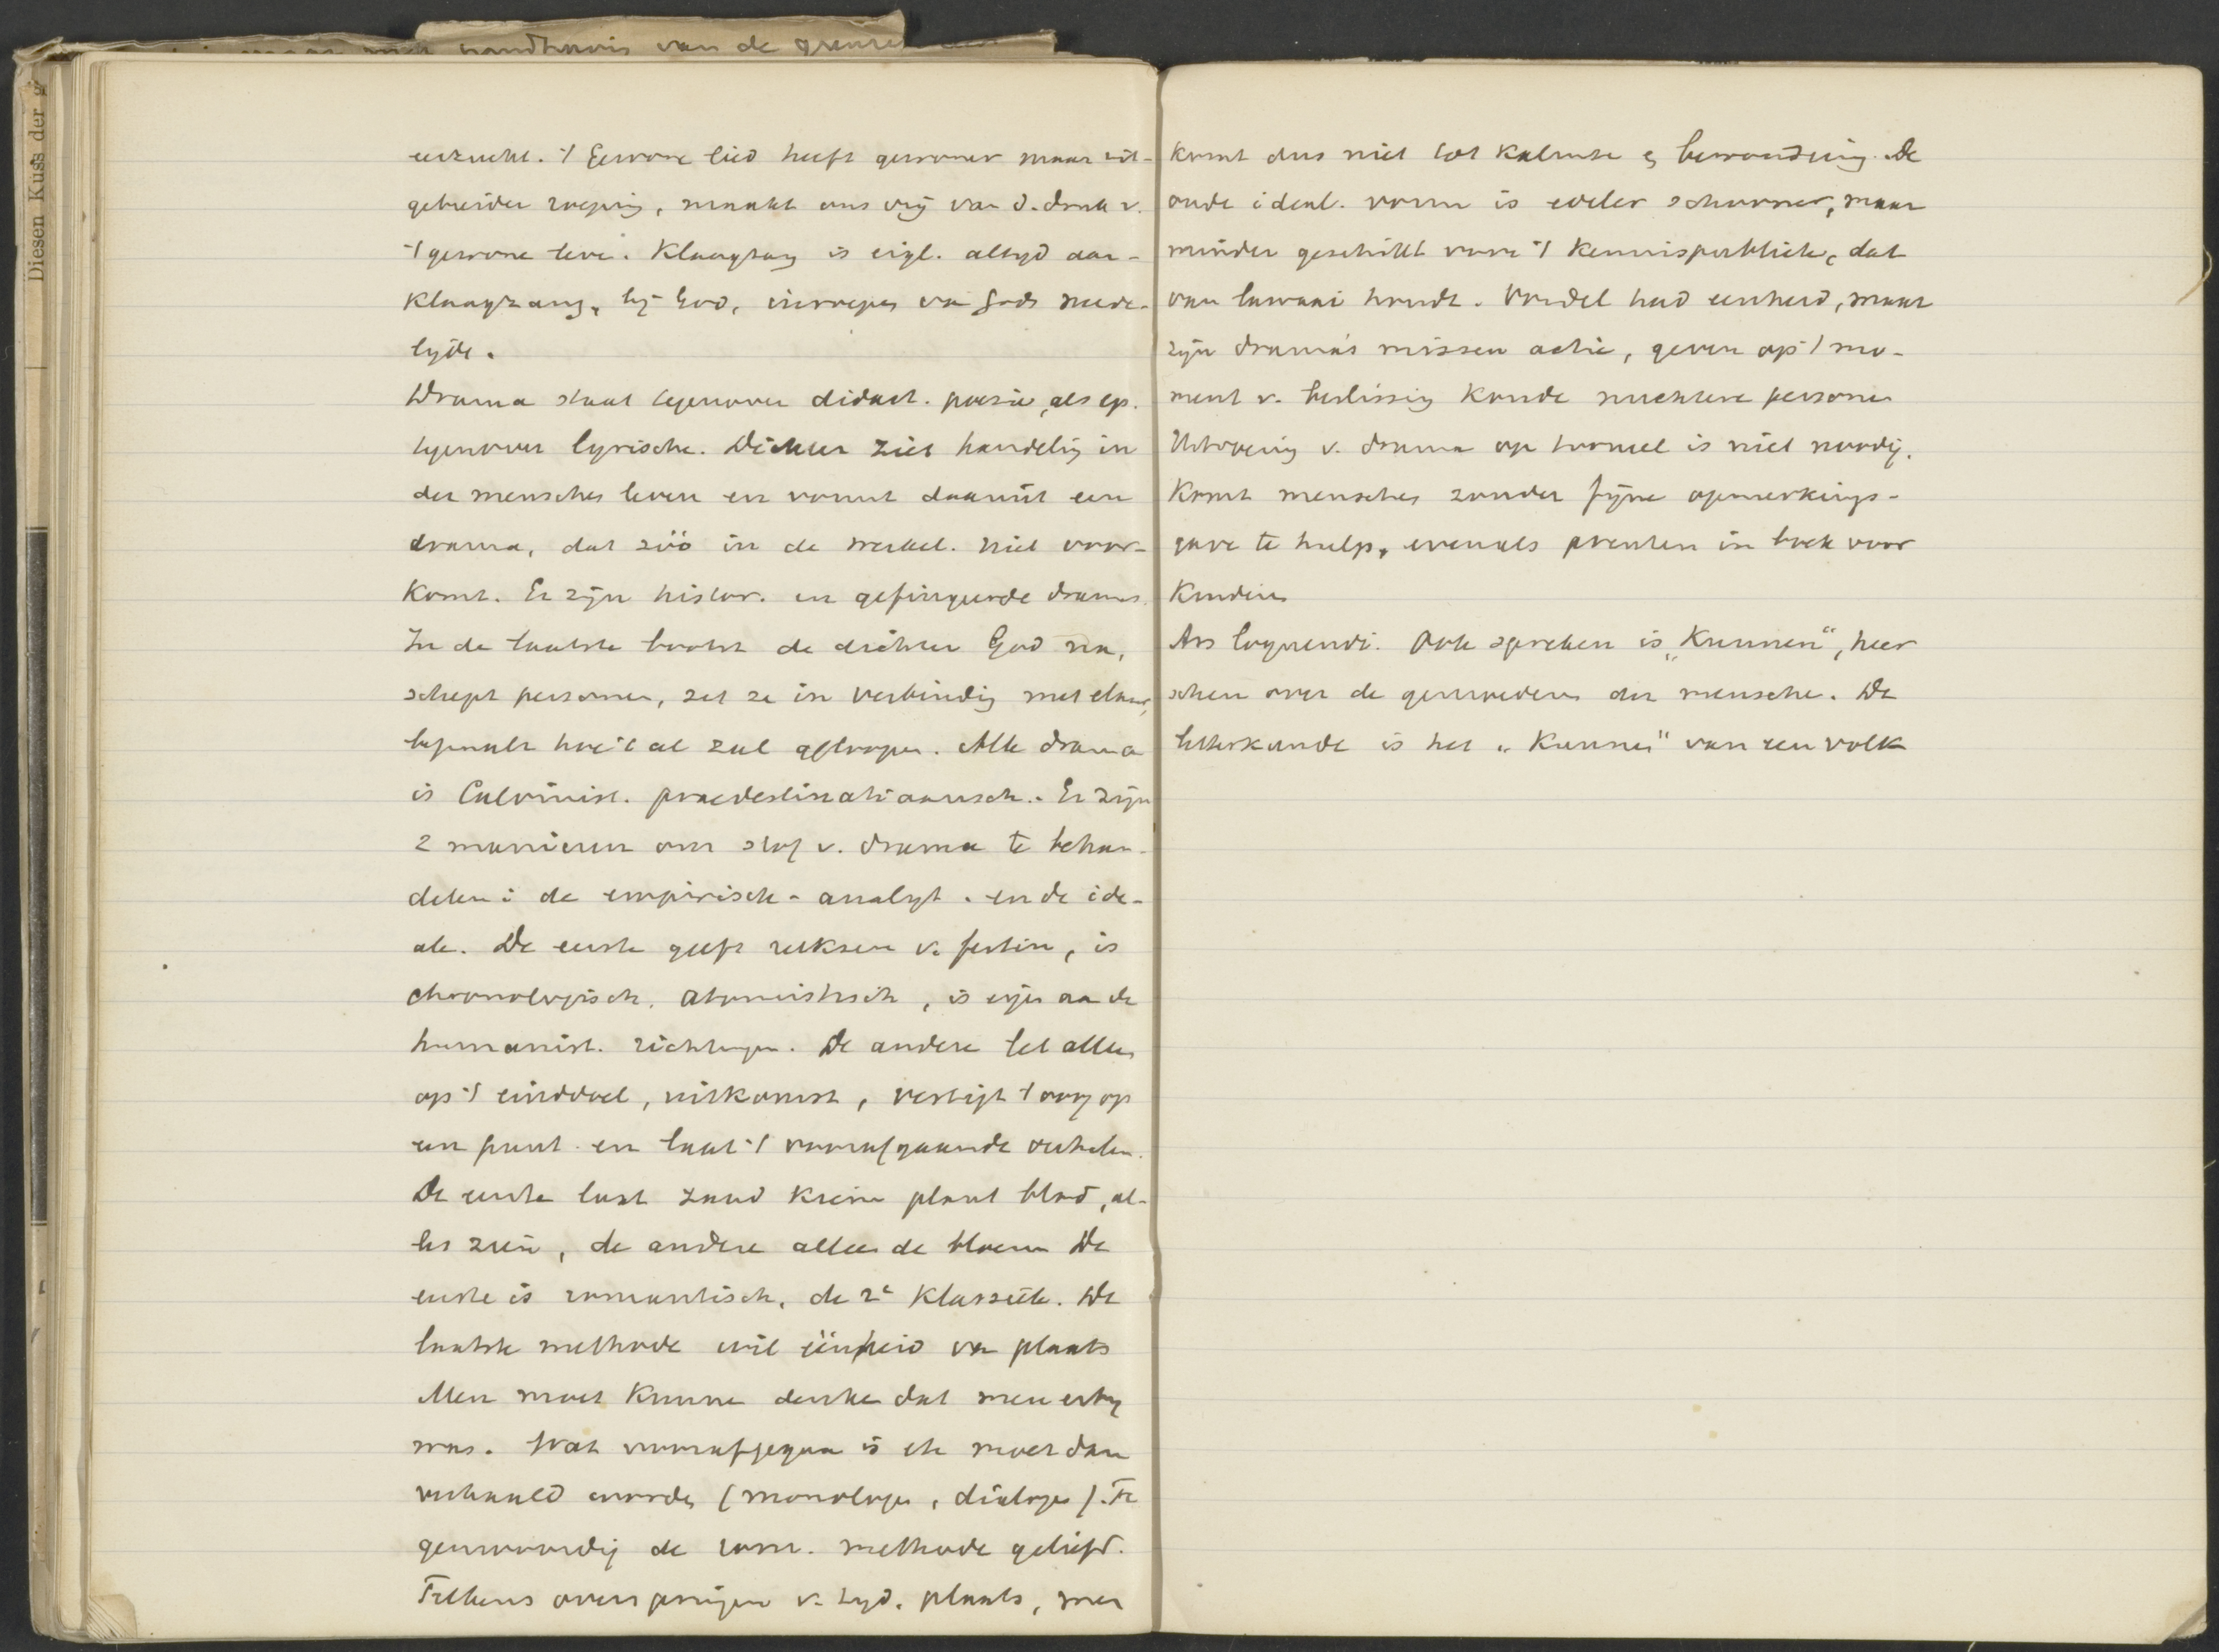 handhavis van de grenzen
Diesen Kuss der g
eerzucht. 't Gewone lied heeft gewoner maar uit-
gebreider roeping, maakt ons vrij van d. druk v.
't gewone leve. Klaagzang is eigl. altyd aan-
klaagzang, bij God, inroepen van Gods mede-
lijde.
Drama staat tegenover didact. poezie, als ep.
tegenover lyrische. Dichter ziet handelig in
der mensches leven en vormt daaruit een
drama, dat zóó in de werkel. niet voor-
komt. Er zijn histor. en gefingeerde dramas.
In de laatste bootst de dichter God na,
schept personen, zet ze in verbindig met elkaar,
bepaalt hoe 't al zal afloopen. Alle drama
is Calvinist. praedestinatiaansch. Er zijn
2 manieren om stof v. drama te behan-
delen: de empirisch-analyt. en de ide-
ale. De eerste geeft reeksen v. feiten, is
chronologisch, atomistisch, is eigen aan de
humanist. richtingen. De andere let alleen
op 't einddoel, uitkomst, vestigt 't oog op
een punt en laat 't voorafgaande verhalen.
De eerste laat zaad kiem plant blad, al-
les zien, de andere alleen de bloem De
eerste is romantisch, de 2e klassiek. De
laatste methode wil éénheid van plaats
Men moet kunne denke dat men erbij
was. Wat voorafgegaan is etc moet dan
verhaald worden (monologen, dialogen). Te
genwoordig de rom. methode geliefd.
Telkens overspringen v. tyd. plaats, men
komt dus niet tot kalmte en bewondering. De
oude ideal. vorm is edeler schooner, maar
minder geschikt voor 't kennispubliek, dat
van lawaai houdt. Vondel had eenheid, maar
zijn drama's missen actie, geven op 't mo-
ment v. beslissing koude nuchtere personen
Uitvoering v. drama op tooneel is niet noodig.
Komt mensches zonder fijne opmerkings-
gave te hulp, evenals prenten in boek voor
kinderen
Ars loquendi. Ook spreken is „Kunnen", heer
schen over de gemoederen der mensche. De
letterkunde is het „Kunnen" van een volk